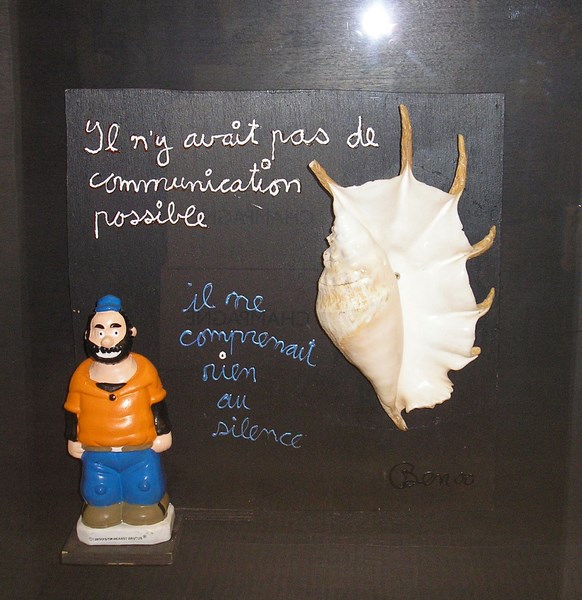 Il n'y avait pas de
communication
possible
il ne
comprenait
rien
au
silence
Ben